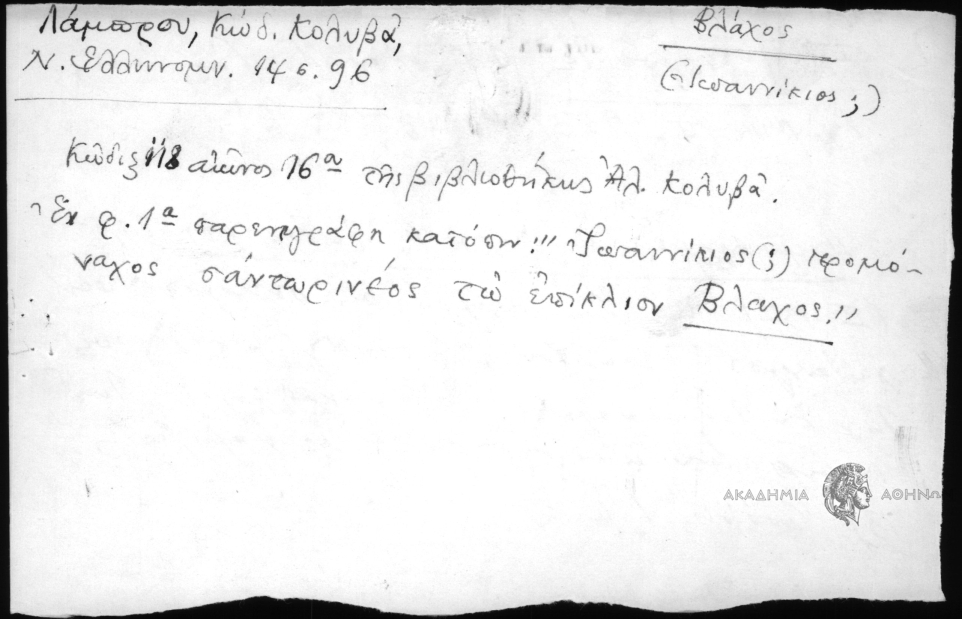 Λάμπρου, Κώδ. Κολυβᾶ,
Ν. Ἑλληνομν. 14 σ. 96
Βλάχος
(Ἰωαννίκιος ;)
Κῶδιξ 118 αἰῶνος 16α τῆς βιβλιοθήκης Ἀλ. Κολυβᾶ.
Ἐν φ. 1α παρενεγράφη κατόπιν: "Ἰωαννίκιος(;) ἱερομό-
ναχος σάντωρινέος τῶ ἐπίκλιον Βλαχος."
ΑΚΑΔΗΜΙΑ ΑΘΗΝΩ